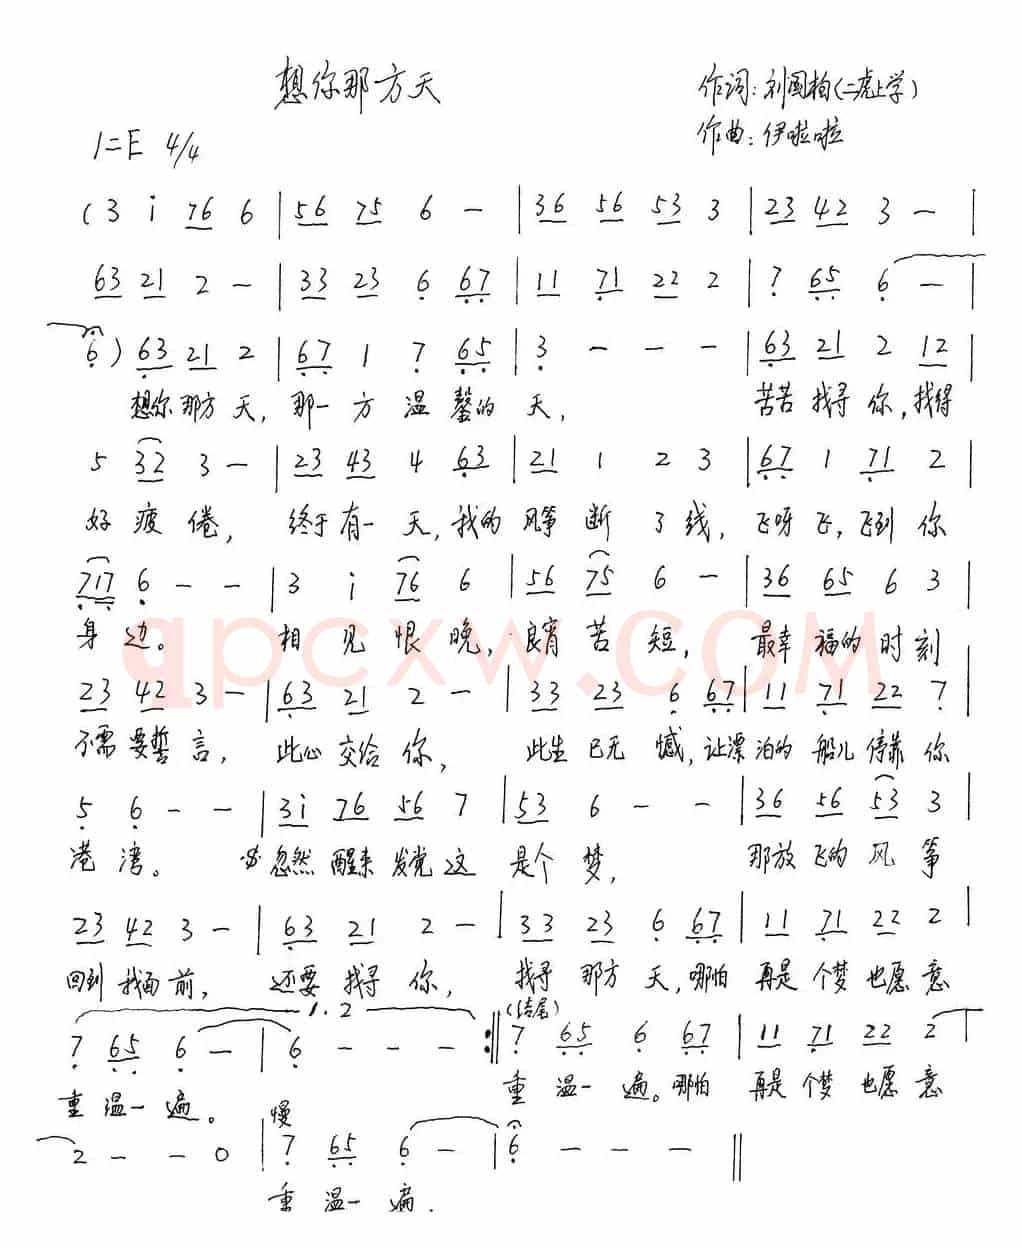 想你那方天
作词：刘国柏（二虎上学）
1=E 4/4
作曲：伊啦啦
(3 i 76 6 | 56 75 6 — | 36 56 53 3 | 23 42 3 — |
63 21 2 — | 33 23 6 67 | 11 71 22 2 | 7 65 6 — |
6) 63 21 2 | 67 1 7 65 | 3 — — — | 63 21 2 12 |
想你那方天，那一方温馨的天，苦苦找寻你，找得
5 32 3 — | 23 43 4 63 | 21 1 2 3 | 67 1 71 2 |
好疲倦，终于有一天，我的风筝断了线，飞呀飞，飞到你
717 6 — — | 3 i 76 6 | 56 75 6 — | 36 65 6 3 |
身边。相见恨晚，良宵苦短，最幸福的时刻
qpcxw.COM
23 42 3 — | 63 21 2 — | 33 23 6 67 | 11 71 22 7 |
不需要誓言，此心交给你，此生已无憾，让漂泊的船儿停靠你
5 6 — — | 3i 76 56 7 | 53 6 — — | 36 56 53 3 |
港湾。忽然醒来发觉这是个梦，那放飞的风筝
23 42 3 — | 63 21 2 — | 33 23 6 67 | 11 71 22 2 |
回到我面前，还要找寻你，找寻那方天，哪怕再是个梦也愿意
1.2 (结尾)
7 65 6 — | 6 — — — :|| 7 65 6 67 | 11 71 22 2 |
重温一遍。重温一遍。哪怕再是个梦也愿意
慢
2 — — 0 | 7 65 6 — | 6 — — — ||
重温一遍.